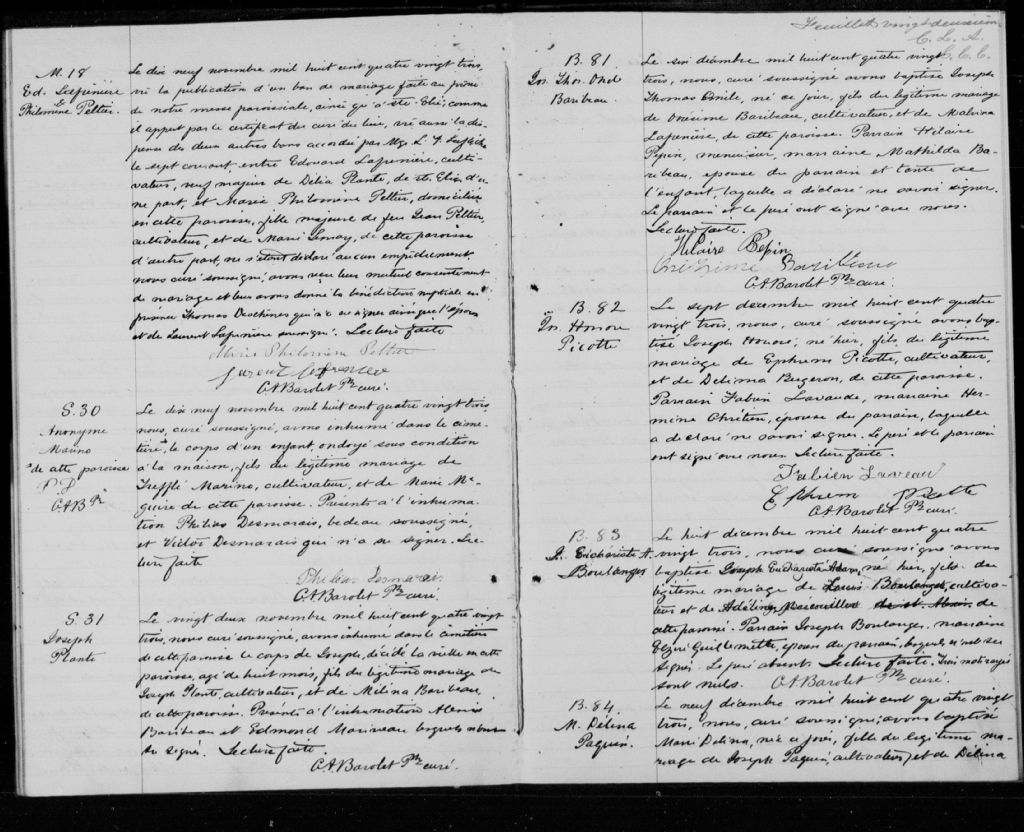 M. 18
Ed. Lafrenière
et
Philomène Peltier.
Le dix neuf novembre mil huit cent quatre vingt trois,
vu la publication d'un ban de mariage faite au prône
de notre messe paroissiale, ainsi qu'à ste Elie, comme
il appert par le certificat du curé du lieu, vu aussi la dis-
pense de deux autres bans accordée par Mgr L. F.
le sept courant, entre Edouard Lafrenière, culti-
vateur, veuf majeur de Délia Plante, de st. Elie d'u-
ne part, et Marie Philomène Peltier, domiciliée
en cette paroisse, fille majeure de feu Jean Peltier,
cultivateur, et de Marie Lemay, de cette paroisse
d'autre part, ne s'étant déclaré aucun empêchement,
nous curé soussigné, avons reçu leur mutuel consentement
de mariage et leur avons donné la bénédiction nuptiale en
présence Thomas Deschênes qui n'a su signer ainsi que l'époux
et de Laurent Lafrenière soussigné. Lecture faite
Marie Philomène Peltier
C.A. Barolet Ptre curé.
S. 30
Anonyme
Marino
de cette paroisse
P P
C.A.B. Pr
Le dix neuf novembre mil huit cent quatre vingt trois,
nous, curé soussigné, avons inhumé dans le cime-
tière, le corps d'un enfant ondoyé sous condition
à la maison, fils du légitime mariage de
Treffle Marino, cultivateur, et de Marie Ma-
guire de cette paroisse. Présents à l'inhuma-
tion Philias Desmarais, bedeau soussigné,
et Victor Desmarais qui n'a su signer. Lec-
ture faite
Philias Desmarais
C.A. Barolet Ptre curé.
S. 31
Joseph
Plante
Le vingt deux novembre mil huit cent quatre vingt
trois, nous curé soussigné, avons inhumé dans le cimetière
de cette paroisse le corps de Joseph, décédé la veille en cette
paroisse, agé de huit mois, fils du légitime mariage de
Joseph Plante, cultivateur, et de Mélina Baribeau
de cette paroisse. Présents à l'inhumation Alexis
Baribeau et Edmond Marineau lesquels n'ont
su signé. Lecture faite.
C.A. Barolet Ptre curé.
Feuillet vingt deuxième.
C. L. A.
C. C. C.
B. 81
Jos. Thos. Onés.
Baribeau.
Le six décembre mil huit cent quatre vingt
trois, nous, curé soussigné avons baptisé Joseph
Thomas Onésile, né ce jour, fils du légitime mariage
de Onésime Baribeau, cultivateur, et de Malvina
Lafrenière, de cette paroisse. Parrain Hilaire
Pepin, menuisier, marraine Mathilda Ba-
ribeau, épouse du parrain et tante de
l'enfant, laquelle a déclaré ne savoir signer.
Le parrain et le père ont signé avec nous.
Lecture faite.
Hilaire Pepin
Onésime Baribeau
C.A. Barolet Ptre curé.
B. 82
Jos. Honore
Picotte
Le sept décembre mil huit cent quatre
vingt trois, nous, curé soussigné avons bap-
tisé Joseph Honoré, né hier, fils du légitime
mariage de Ephrem Picotte, cultivateur,
et de Délima Bergeron, de cette paroisse.
Parrain Fabien Lavaude, marraine Her-
mine Chrétien, épouse du parrain, laquelle
a déclaré ne savoir signer. Le père et le parrain
ont signé avec nous Lecture faite.
Fabien Laveau
Ephrem Picotte
C.A. Barolet Ptre curé.
B. 83
Jos. Euchariste A.
Boulanger
Le huit décembre mil huit cent quatre
vingt trois, nous curé soussigné avons
baptisé Joseph Euchariste Adam, né hier, fils du
légitime mariage de Louis Boulanger, cultiva-
teur et de Adéline Marcouiller de st. Alexis de
cette paroisse. Parrain Joseph Boulanger, marraine
Elzire Guillemette, épouse du parrain, lesquels n'ont su
signer. Le père absent. Lecture faite. Trois mots rayés
sont nuls. C.A. Barolet Ptre curé.
B. 84
M. Délina
Paquin.
Le neuf décembre mil huit cent quatre vingt
trois, nous, curé soussigné, avons baptisé
Marie Délina, née ce jour, fille du légitime ma-
riage de Joseph Paquin, cultivateur, et de Délina